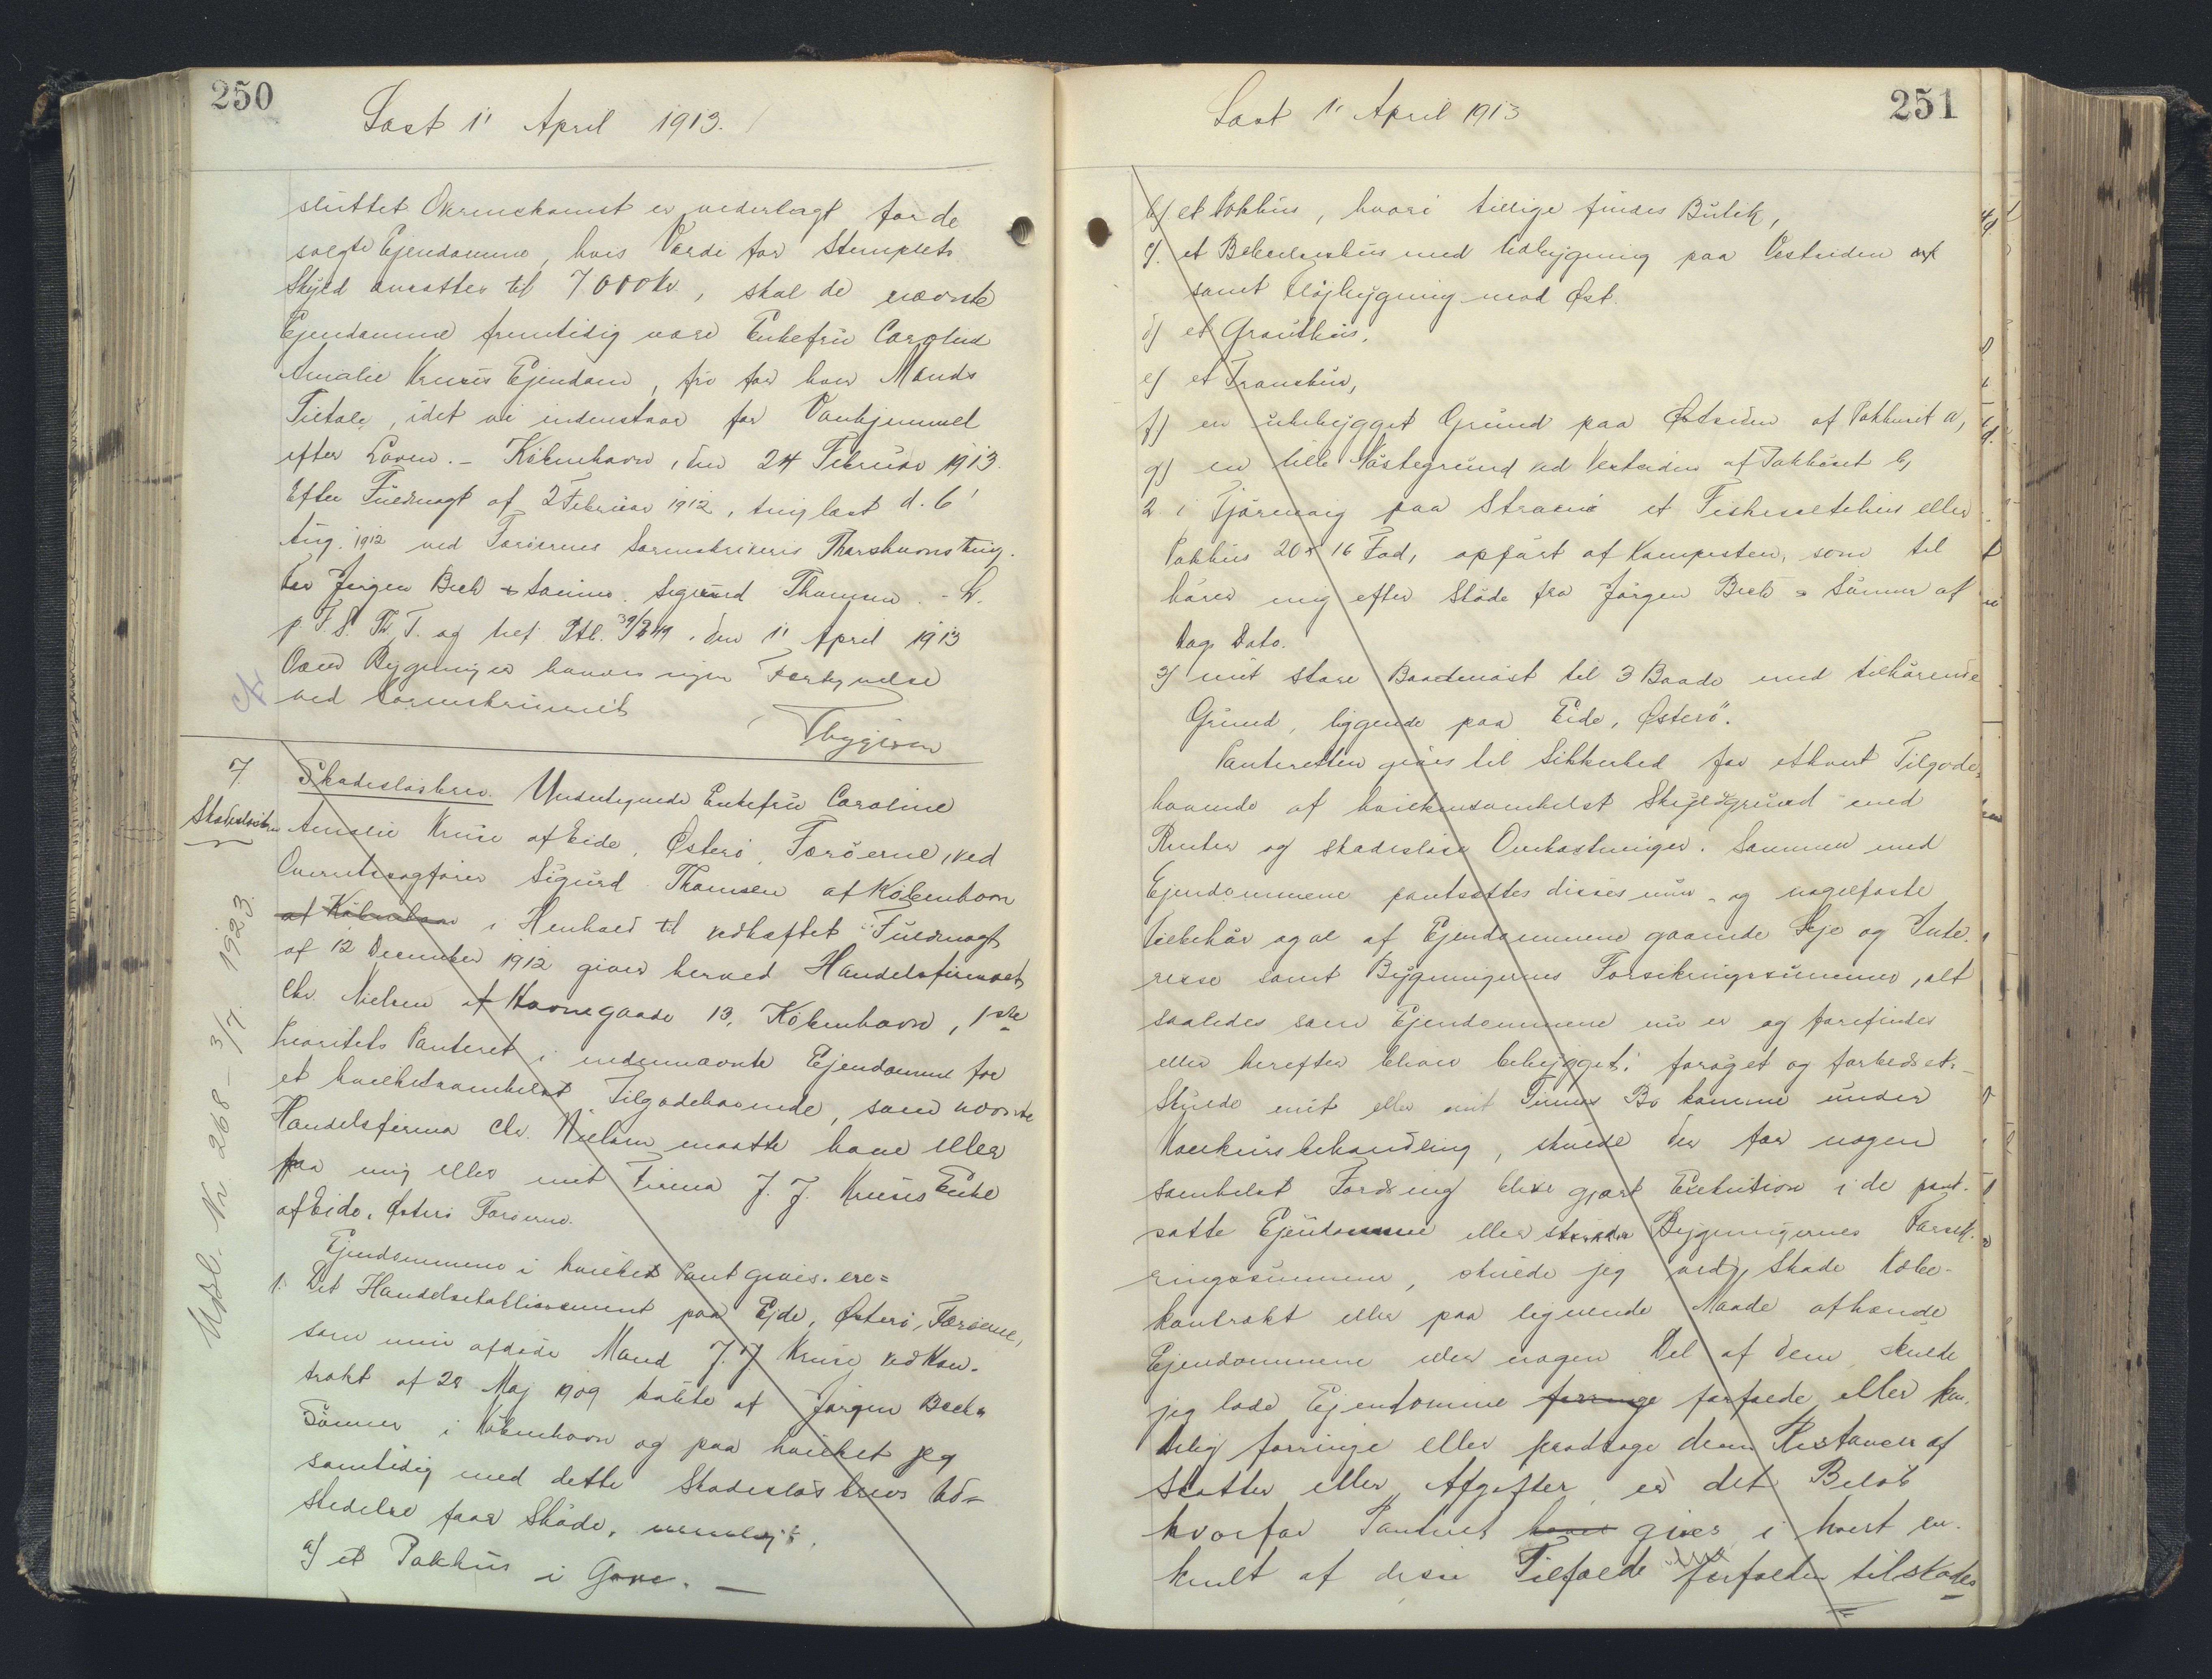 250
Læst 1' April 1913.
sluttet Overenskomst er vederlagt for de
solgte Ejendomme, hvis Værdi for Stemplets
Skyld ansættes til 7000 Kr, skal de nævnte
Ejendomme fremtidig være Enkefru Caroline
Amalie Kruses Ejendom, fri for hver Mands
Tiltale, idet vi indenstaar for Vanhjemmel
efter Loven. – København, den 24 Februar 1913.
Efter Fuldmagt af 2 Februar 1912, tinglæst d. 6'
Aug. 1912 ved Færøernes Sorenskriveris Thorshavns Ting.
for Jørgen Bech & Sønner. Sigurd Thomsen. -L.
p F. S. Th. T. og ref. Ptl. den 1' April 1913
Bygninger haves ingen
ved Sorenskriveriet
Thygesen
7
Skadesløsbrev
Skadesløsbrev. Undertegnede Enkefru Caroline
Amalie Kruse af Eide, Østerø, Færøerne, ved
Overretssagfører Sigurd Thomsen af København
af København i Henhold til vedhæftet Fuldmagt
af 12 December 1912 giver herved Handelsfirmaet
Chr. Nielsen af Havnegaade 13, København, 1ste
Prioritets Panteret i nedennævnte Ejendomme for
et hvilketsomhelst Tilgodehavende, som nævnte
Handelsfirma Chr. Nielsen maatte have eller
faa mig eller mit Firma J. J. Kruses Enke
af Eide, Østerø Færøerne.
Ejendommene i hvilket Pant gives. ere=
1. Det Handelsetablissement paa Ejde, Østerø, Færøerne,
som min afdøde Mand J. J. Kruse ved Kon-
trakt af 28 Maj 1909 købte af Jørgen Bech &
Sønner i København og paa hvilket jeg
samtidig med dette Skadesløsbrevs Ud-
stedelse faar Skøde, nemlig:
a) et Pakhus i Gave. —
Udsl. Nr. 268 – 3/7. 1923.
251
Læst 1' April 1913
b) et Pakhus, hvori tillige findes Butik,
c). et Beboelseshus med Udbygning paa Vestsiden
samt Fløjbygning mod Øst.
d) et Grauthus,
e) et Transhus,
f) en ubebygget Grund paa Østsiden af Pakhuset a,
g) en lille Nøstegrund ved Vestsiden af Pakhuset b,
2 i Tjørnevig paa Strømø et Fiskesaltehus eller
Pakhus 20 x 16 Fod, opført af Kampesten, som til
hører mig efter Skøde fra Jørgen Bech & Sønner af
Dags Dato.
3) mit store Baadenøst til 3 Baade med tilhørende
Grund, liggende paa Eide, Østerø".
Panteretten gives til Sikkerhed for ethvert Tilgode-
havende af hvilkensomhelst Skyldgrund med
Renter og skadesløse Omkostninger. Sammen med
Ejendommene pantsættes disses mur- og nagelfaste
Tilbehør og al af Ejendommene gaaende Leje og Inte-
resse samt Bygningernes Forsikringssummer, alt
saaledes som Ejendommene nu er og forefindes
eller herefter bliver bebygget, forøget og forbedret.–
Skulde mit eller mit Firmas Bo komme under
Konkursbehandling, skulde der for nogen
somhelst Fordring blive gjort Exekution i de pant-
satte Ejendomme eller Bygningernes Forsik-
ringssummer, skulde jeg ved Skøde Købe-
kontrakt eller paa lignende Maade afhænde
Ejendommene eller nogen Del af dem skulde
jeg lade Ejendomme forringe forfalde eller ken-
delig forringe eller fradrage dem Restancer af
Skatter eller Afgifter er det Beløb
hvorfor Pantet haves gives i hvert en-
kelt af disse Tilfælde forfalden til skades